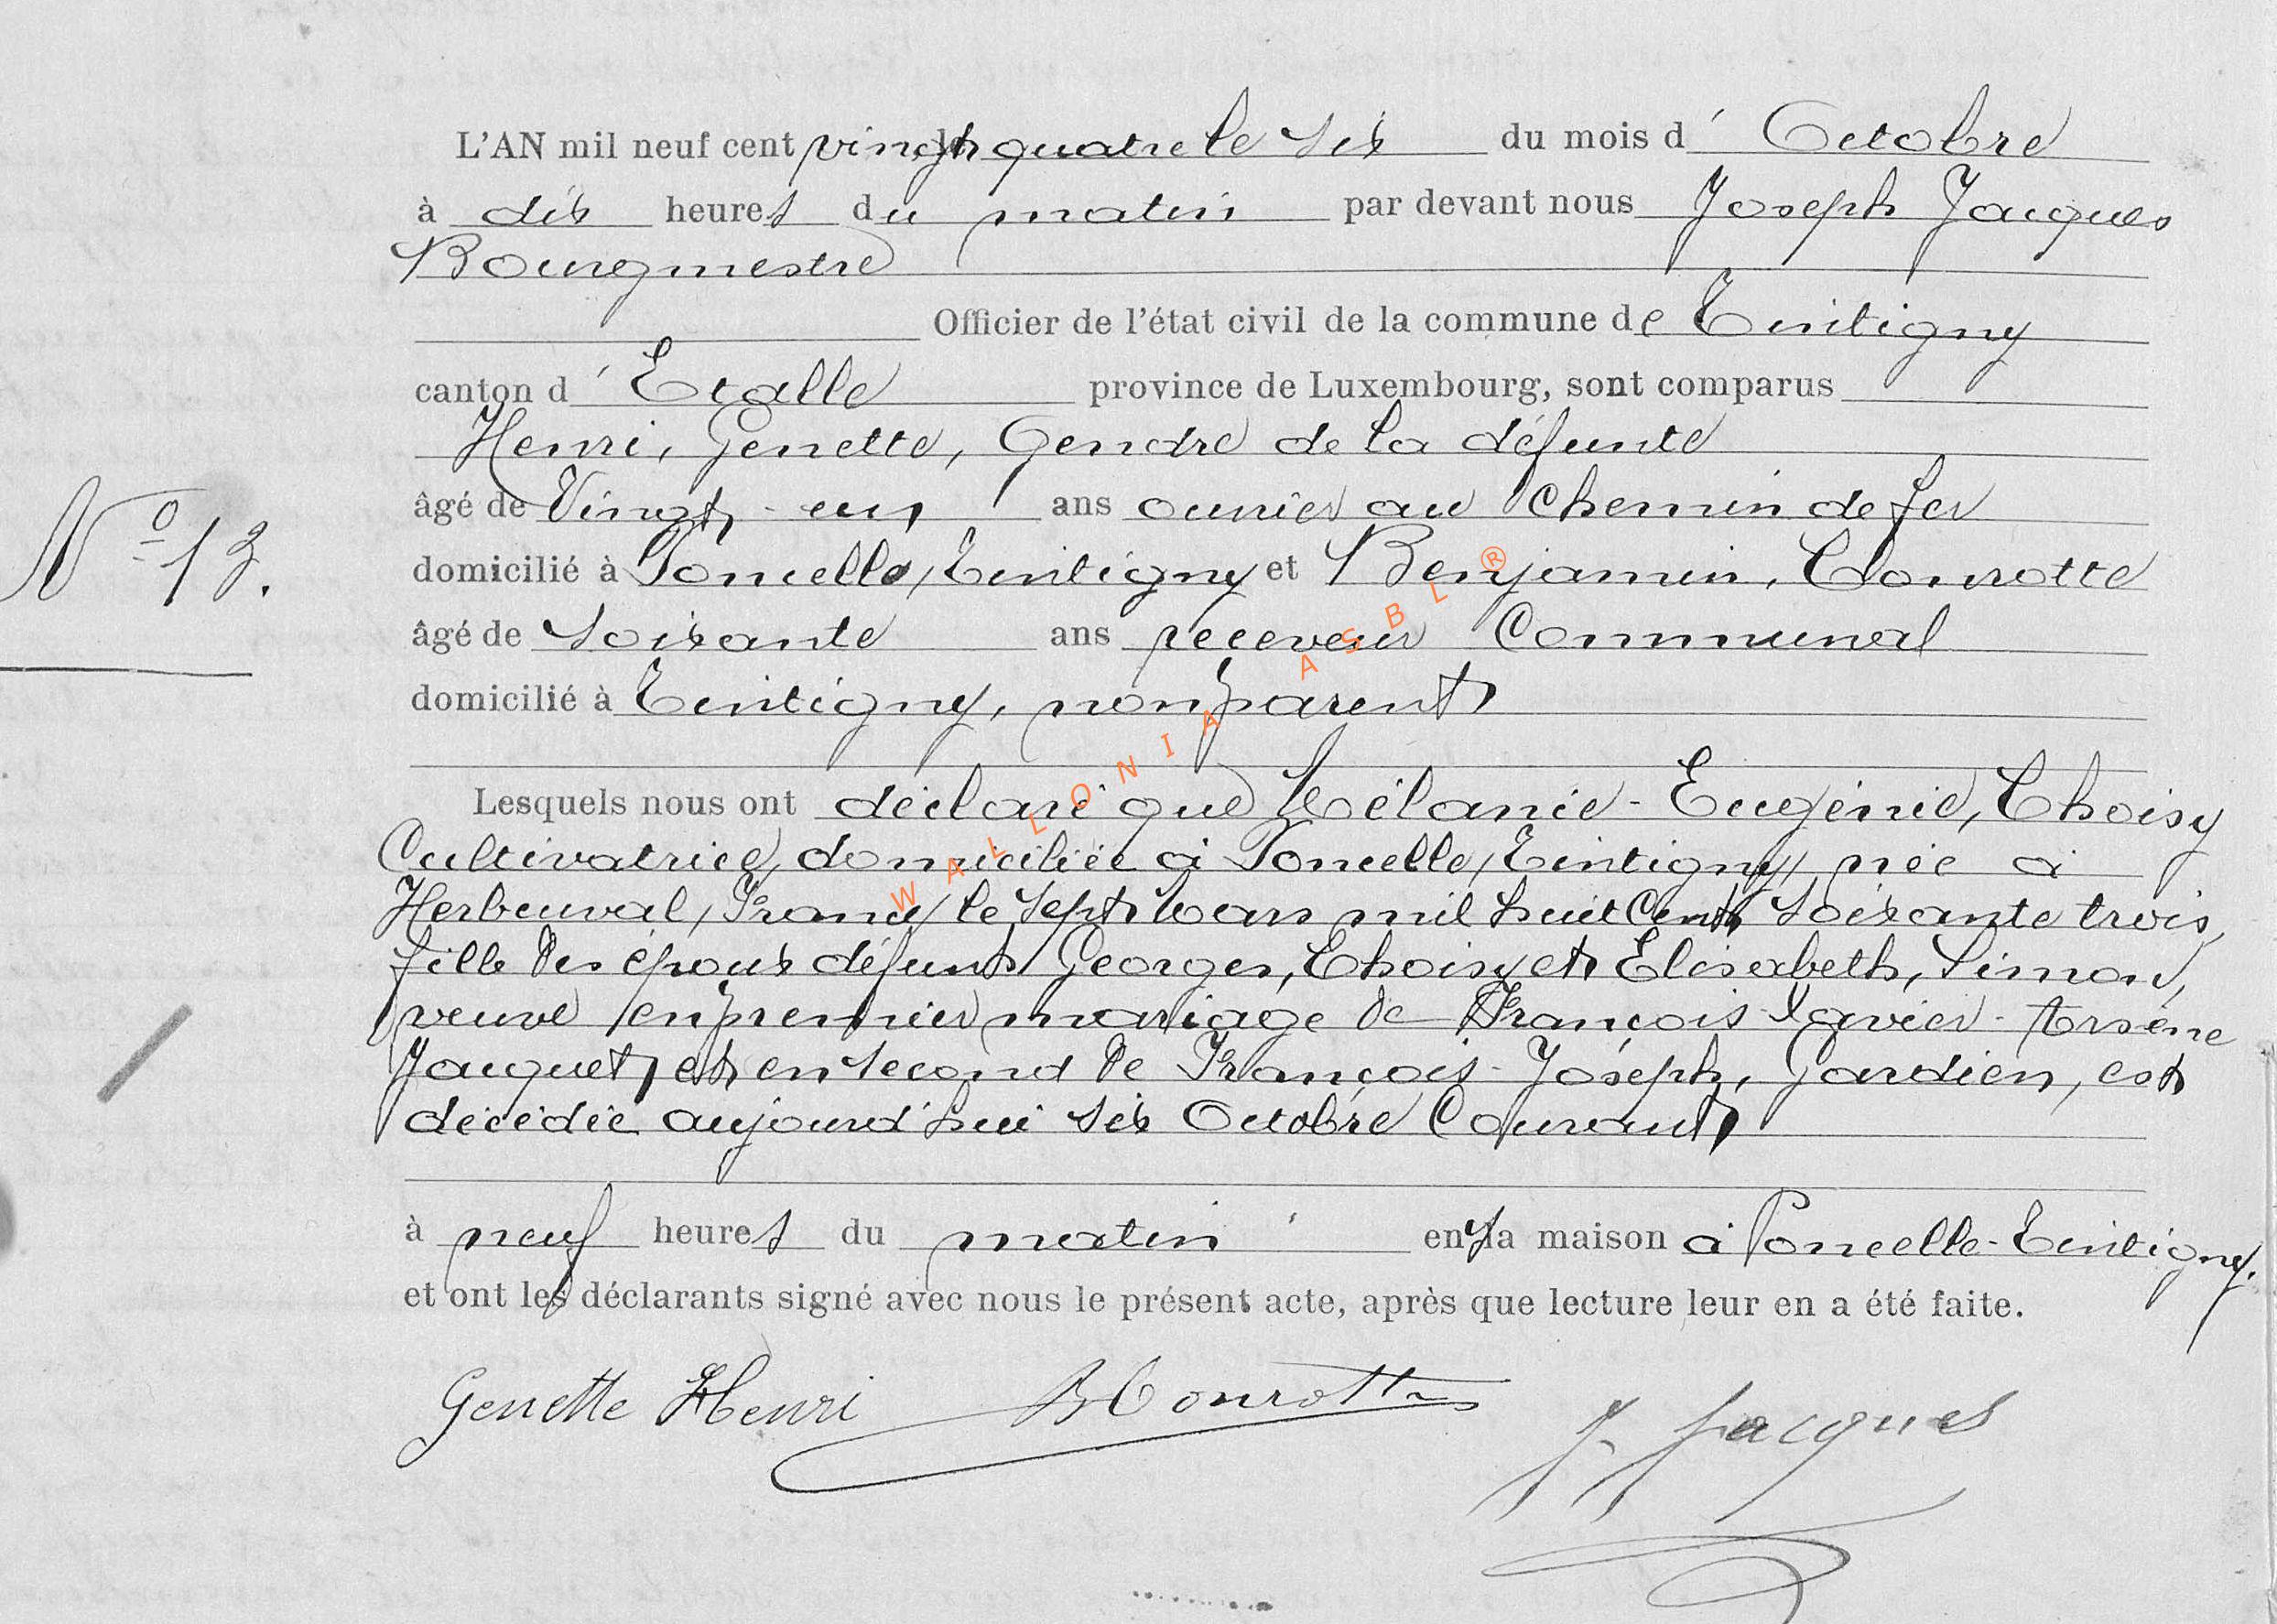 L'AN mil neuf cent vingt quatre le six du mois d' Octobre
à dix heures du matin par devant nous Joseph Jacques
Bourgmestre
Officier de l'état civil de la commune de Tintigny
canton d' Etalle province de Luxembourg, sont comparus
Henri, Genette, Gendre de la défunte
âgé de Vingt-un ans ouvrier au Chemin de fer
domicilié à Poncelle, Tintigny et Benjamin, Conrotte
âgé de Soixante ans receveur Communal
domicilié à Tintigny, non parent
Nº 13.
Lesquels nous ont déclaré que Mélanie-Eugénie, Choisy
Cultivatrice, domiciliée à Poncelle, Tintigny, née à
Herbeuval, France, le sept Mars mil huit Cent Soixante trois,
fille des époux défunts Georges, Choisy et Elisabeth, Simon,
veuve en premier mariage de François-Xavier-Arsène
Jacquet, et en second de François-Joseph, Gardien, est
décédée aujourd'hui six Octobre Courant
à neuf heures du matin en sa maison à Poncelle-Tintigny.
et ont les déclarants signé avec nous le présent acte, après que lecture leur en a été faite.
Genette Henri B Conrotte J. Jacques
WALLONIA ASBL ®